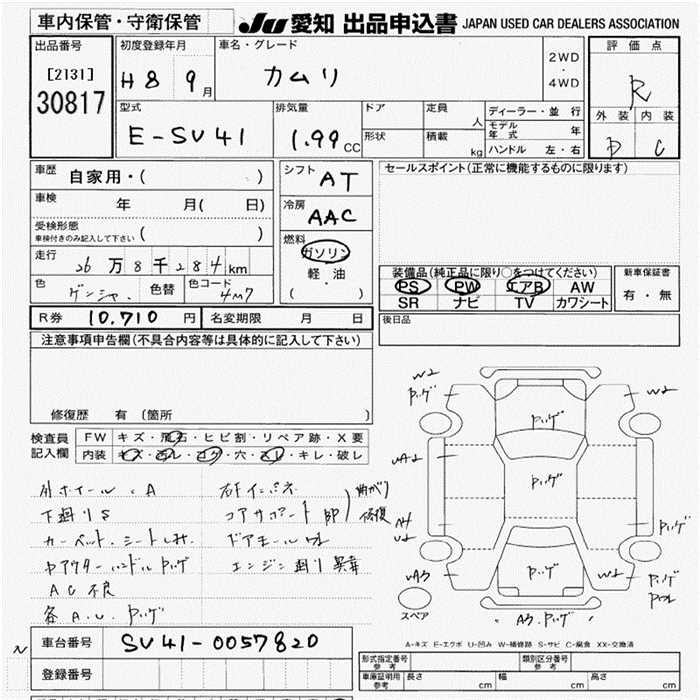 車内保管・守衛保管
JU 愛知 出品申込書 JAPAN USED CAR DEALERS ASSOCIATION
出品番号
[2131]
30817
初度登録年月
H8 9月
車名・グレード
カムリ
2WD
・
4WD
評価点
R
外装 内装
D C
型式
E-SV41
排気量
1.99 CC
ドア
形状
定員 人
積載 kg
ディーラー・並行
モデル年式 年
ハンドル 左・右
車歴 自家用・( )
車検 年 月( 日)
受検形態
車検付きのみ記入して下さい ( )
走行 26万8千284km
色 ゲンシャ. 色替 色コード 4M7
シフト AT
冷房 AAC
燃料
ガソリン
軽・油
( )
セールスポイント(正常に機能するものに限ります)
装備品(純正品に限り○をつけてください)
PS PW エアB AW
SR ナビ TV カワシート
新車保証書
有・無
R券 10,710 円 名変期限 月 日
後日品
注意事項申告欄(不具合内容等は具体的に記入して下さい)
修復歴 有 〔箇所 〕
検査員記入欄
FW キズ・飛石・ヒビ割・リペア跡・X要
内装 キズ・汚レ・コゲ・穴・スレ・キレ・破レ
外ホイール.A
下廻りS
カーペット.シートしみ.
AC不良
各A.U.Pハゲ
コアサポート部
曲がり
修復
エンジン廻り異音
W2
Pハゲ
Pハゲ
W2
UA2
Pハゲ
A4
U2
Pハゲ
UA3
Pハゲ
W2
Pハゲ
A3.Pハゲ
スペア
A-キズ E-エクボ U-凹み W-補修跡 S-サビ C-腐食 XX-交換済
車台番号 SV41-0057820
登録番号
形式指定番号 参考
類別区分番号 参考
車庫証明用 参考 長さ cm 幅 cm 高さ cm